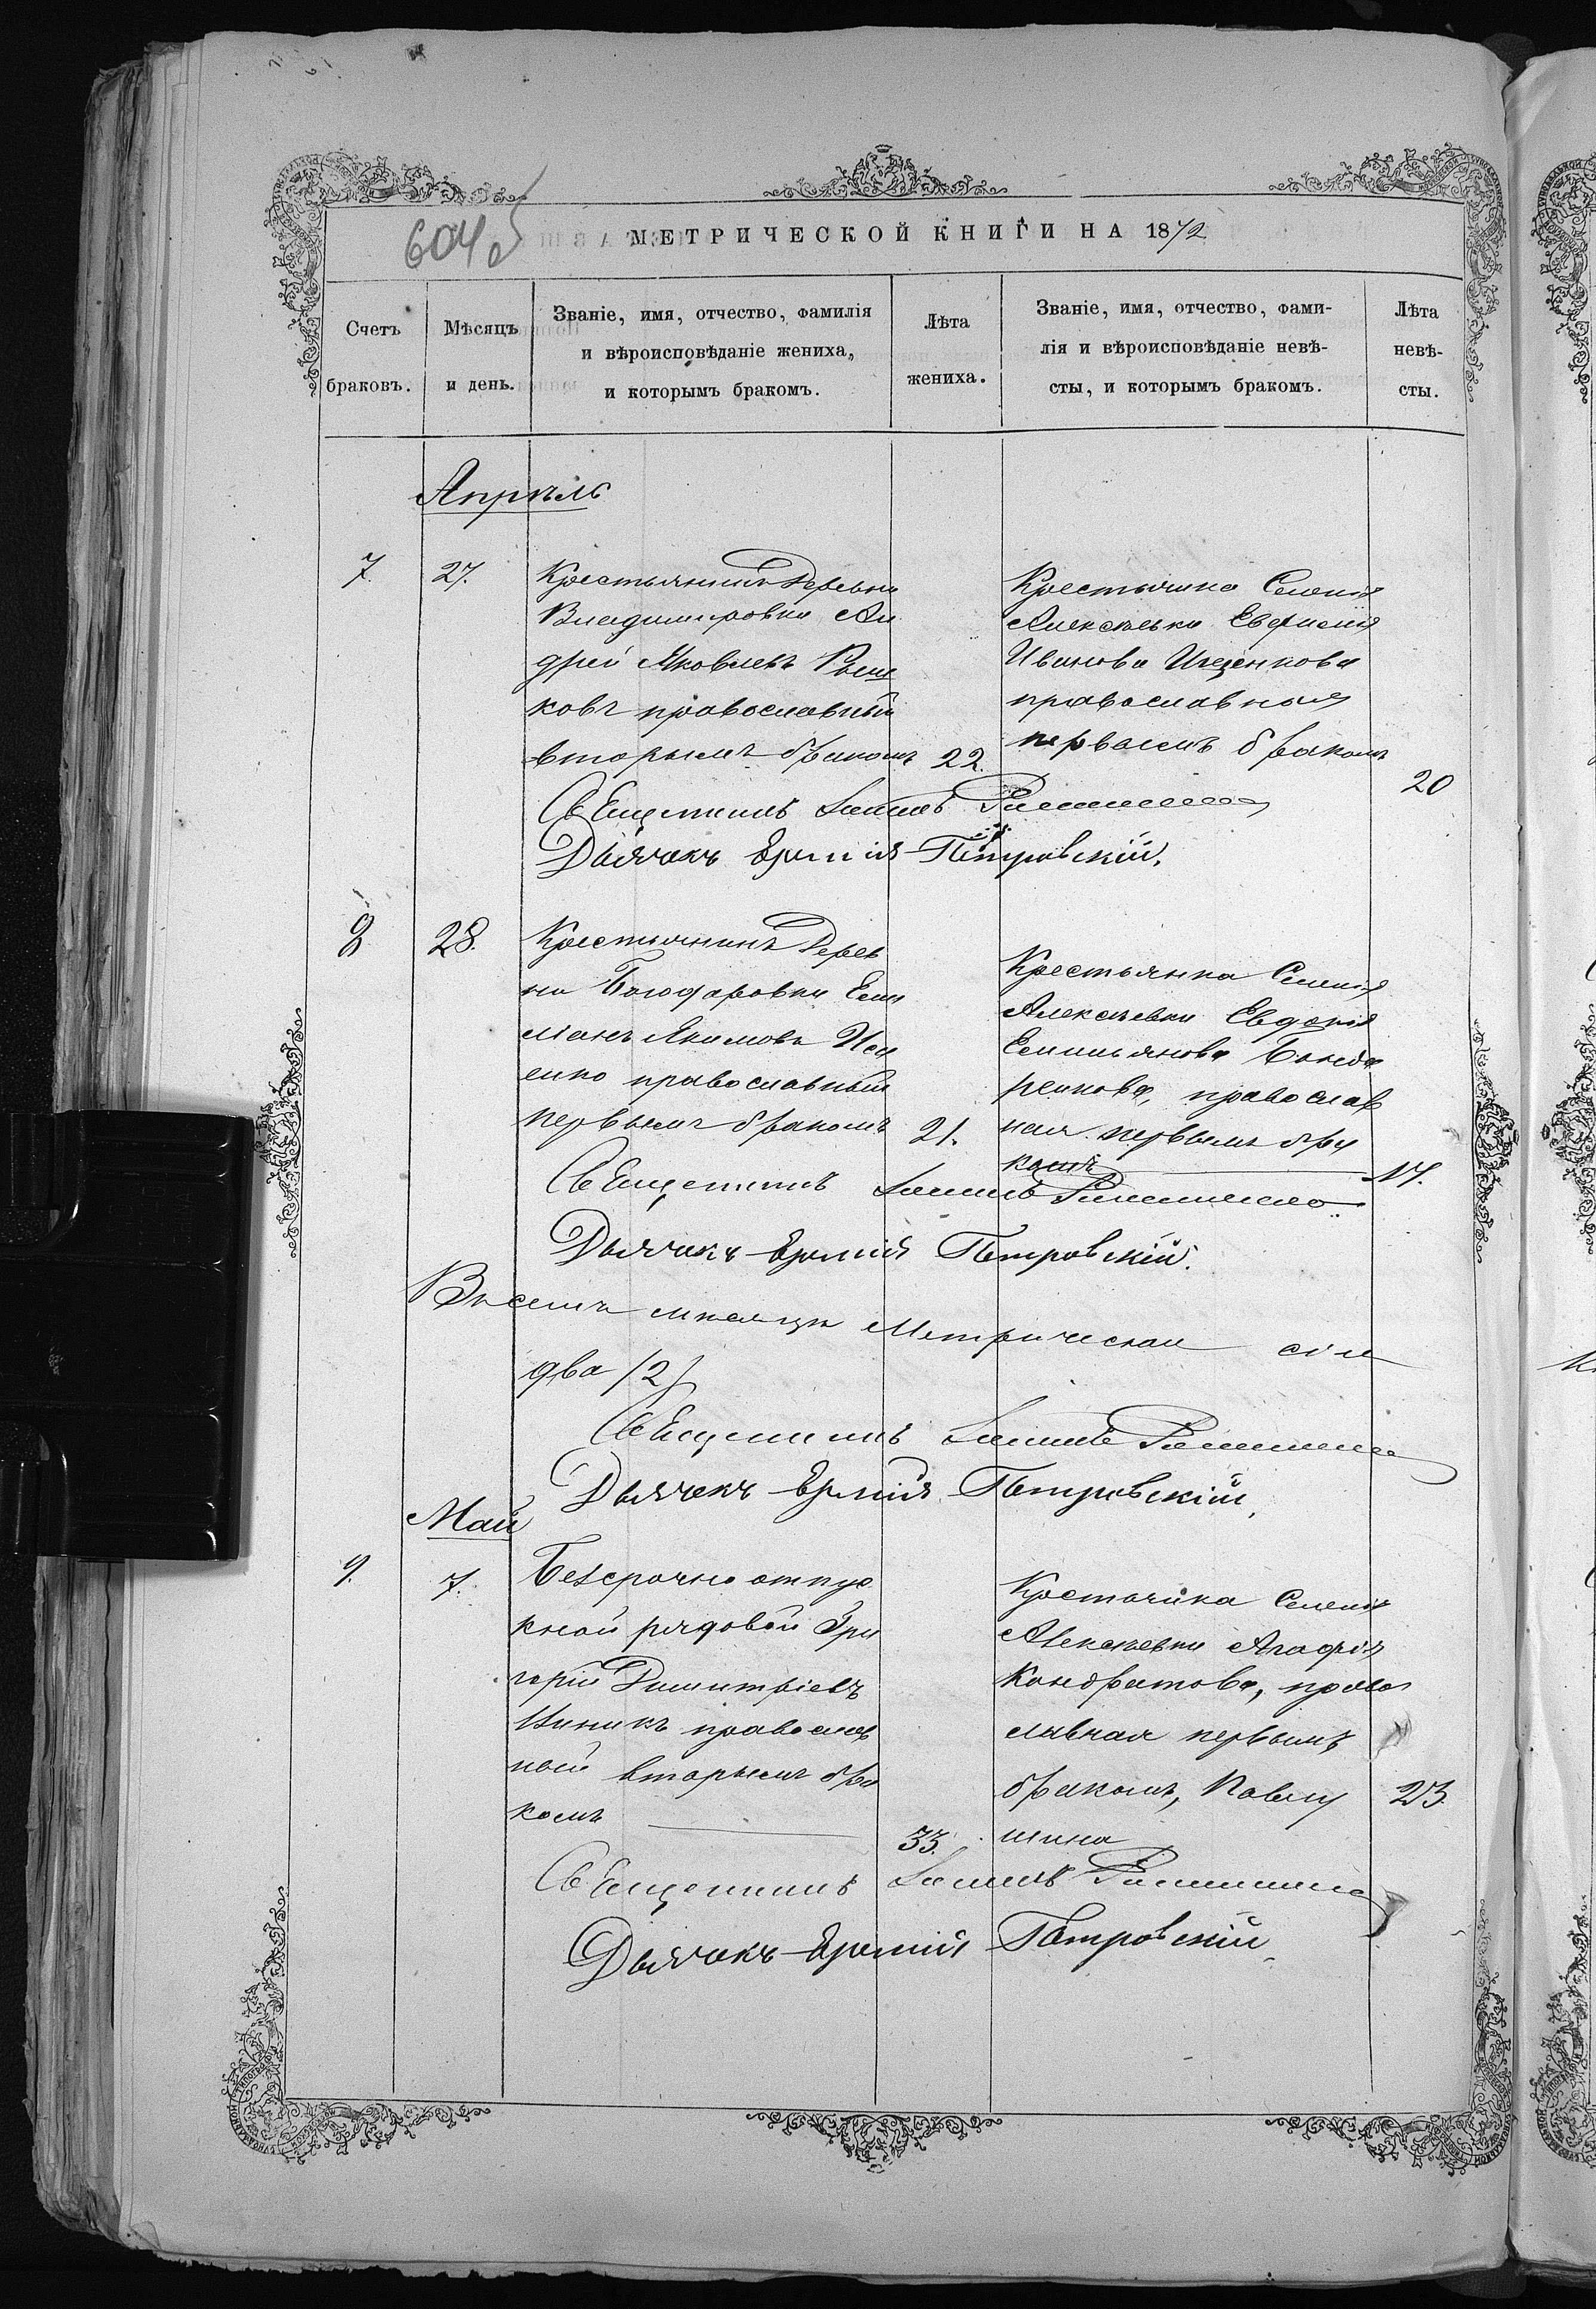 604 об
МЕТРИЧЕСКОЙ КНИГИ НА 1872
Счетъ
браковъ.
Мѣсяцъ
и день.
Званіе, имя, отчество, фамилія
и вѣроисповѣданіе жениха,
и которымъ бракомъ.
Лѣта
жениха.
Званіе, имя, отчество, фами-
лія и вѣроисповѣданіе невѣ-
сты, и которымъ бракомъ.
Лѣта
невѣ-
сты.
Апрѣль
7.
27.
Крестьянинъ Деревни
Владимировки Ан
дрей Яковлевъ
ковъ православный
вторымъ бракомъ
22.
Крестьянка Селенія
Алексѣевки Евфимія
Иванова Ищенкова
православная
первымъ бракомъ
20
Священникъ
Дьячокъ Еремія Петровскій.
8
28.
Крестьянинъ Дерев
ни Бѣлодаровки Еми
ліанъ Якимовъ Иса
енко православный
первымъ бракомъ
21.
Крестьянка Селенія
Алексѣевки Евдокія
Емильянова Бонда
ренкова, православ
ная первымъ бра
комъ
17.
Священникъ
Дьячокъ Еремія Петровскій.
Въ семъ мѣсяцѣ Метрическая сія
два /2/
Священникъ
Дьячокъ Еремія Петровскій.
Май
9.
7.
Безсрочно отпус
кной рядовой Гри
горій Димитріевъ
православ
ной вторымъ бра
комъ
33.
Крестьянка Селенія
Алексѣевки Агафія
Кондратова, право
славная первымъ
бракомъ, Павлу
шина
23
Священникъ
Дьячокъ Еремія Петровскій